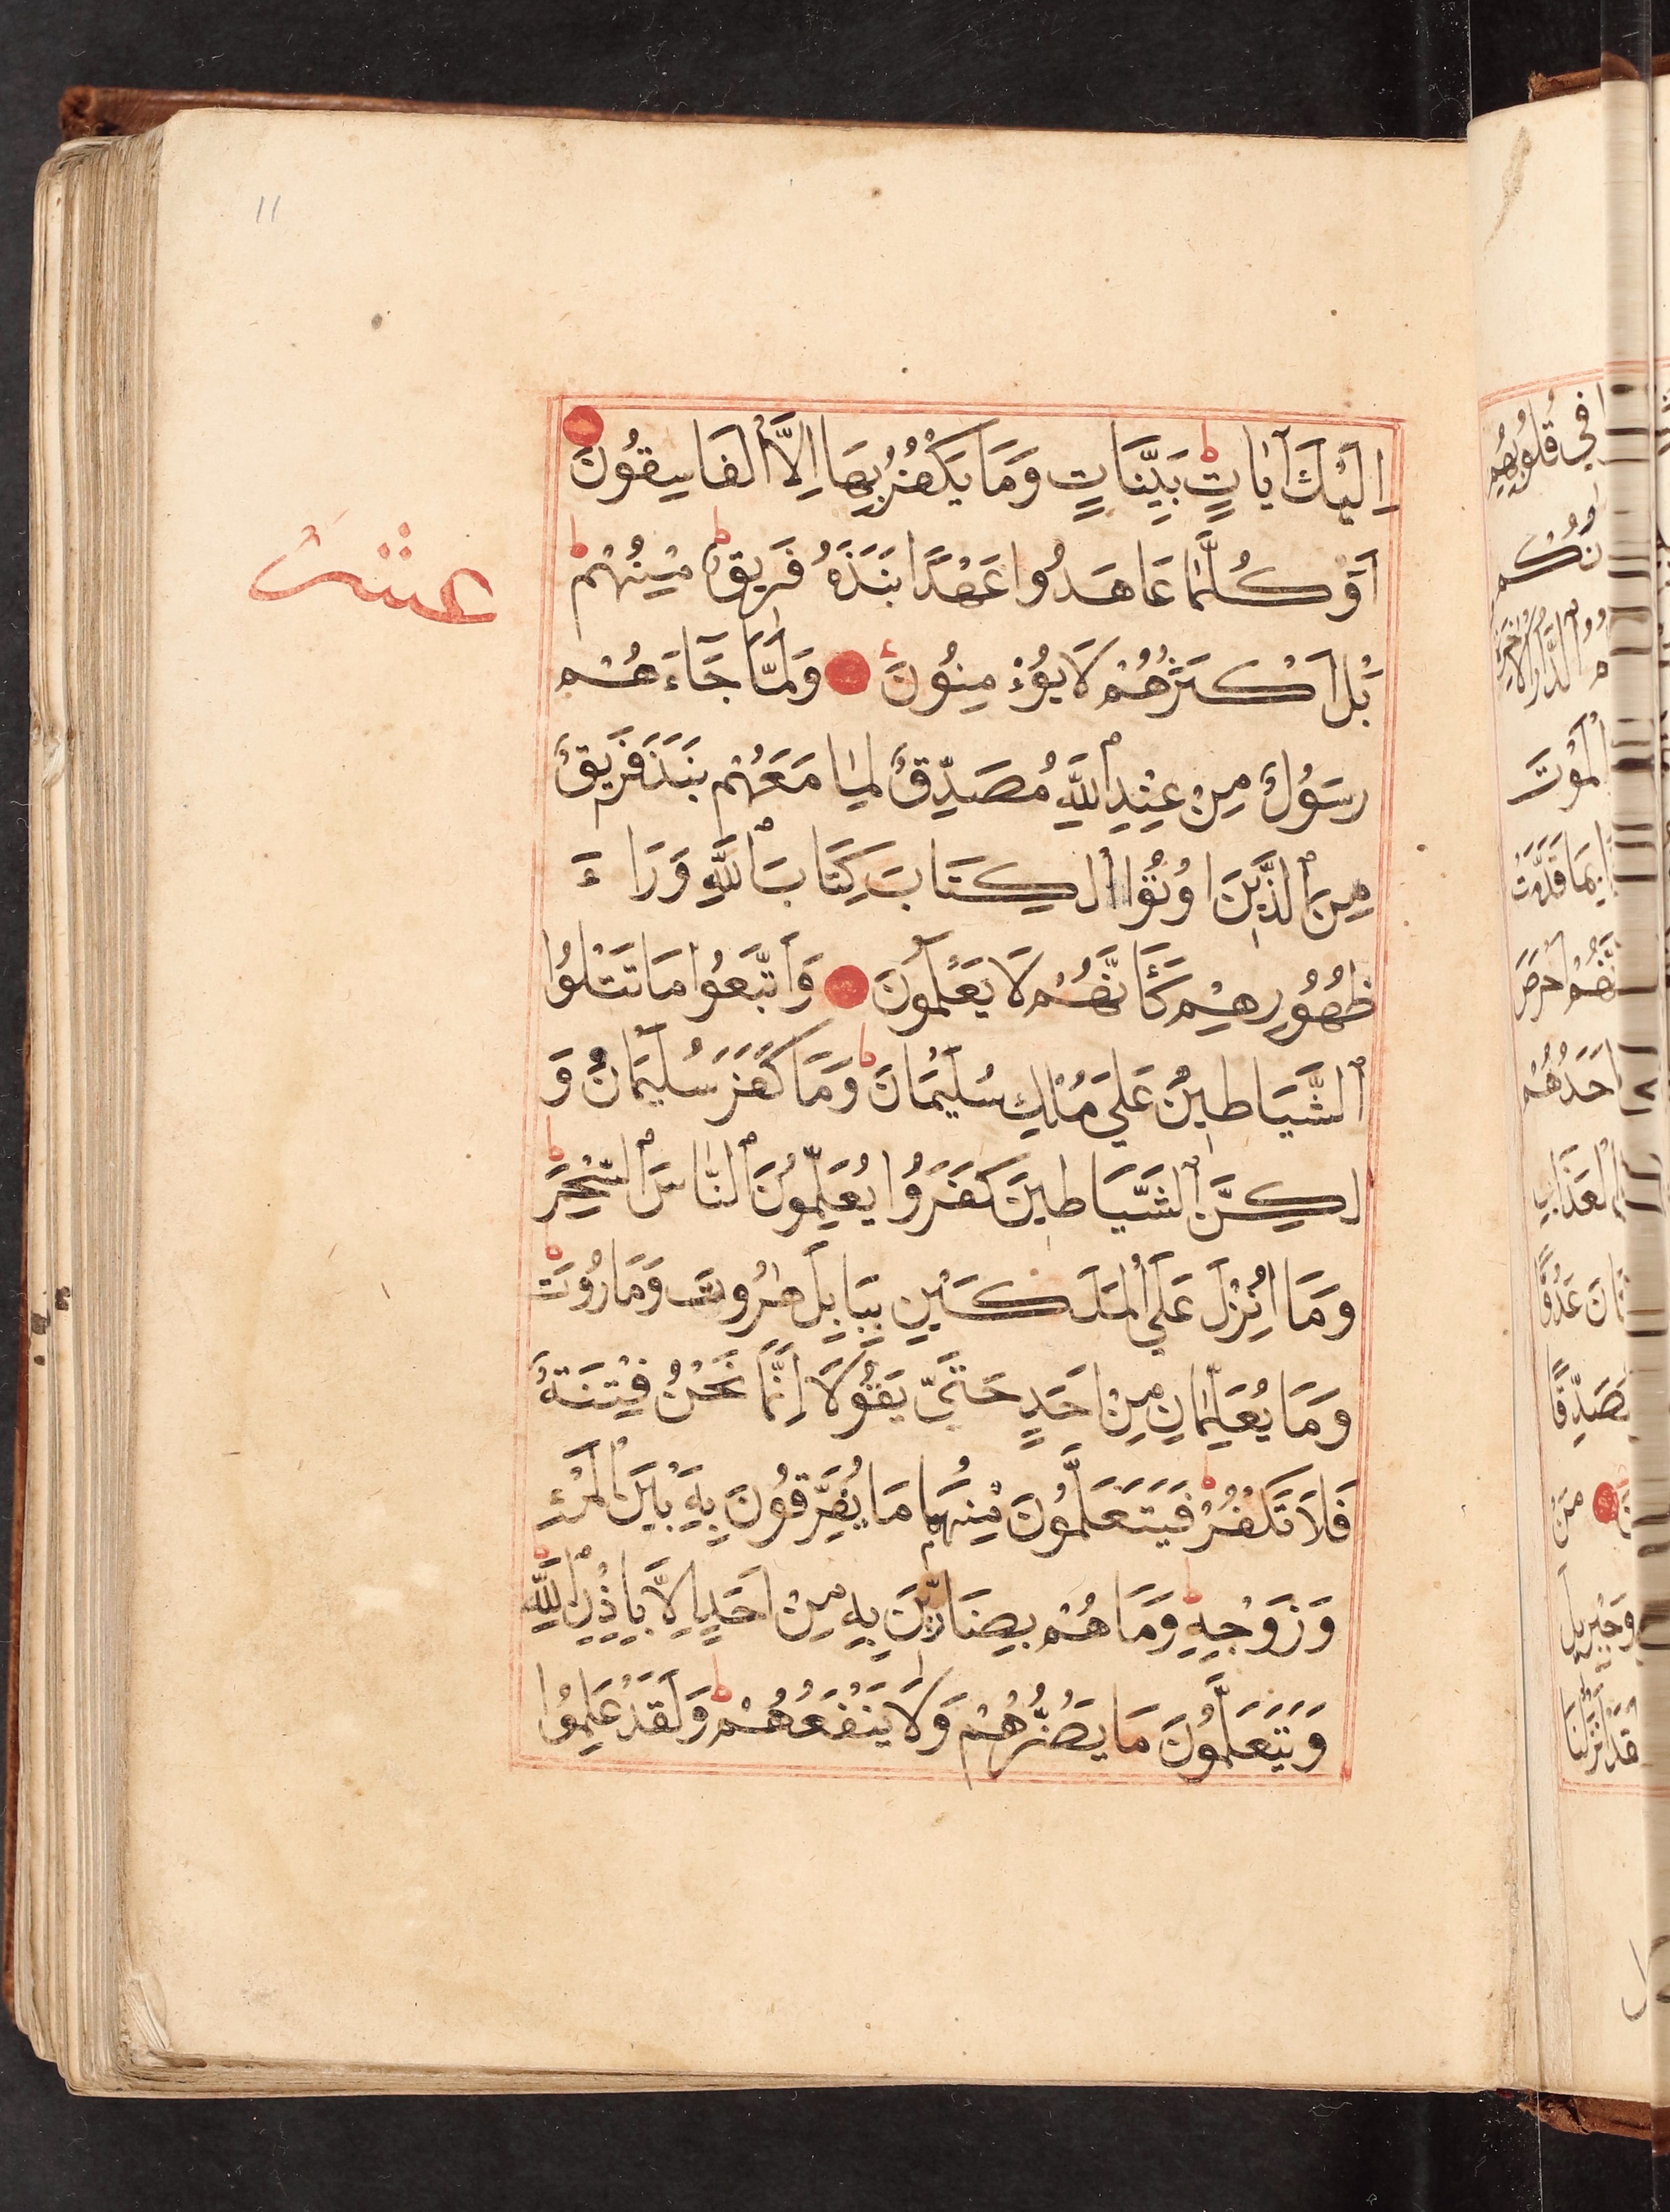 11
اِلَيْكَ آيَاتٍ بَيِّنَاتٍ وَمَا يَكْفُرُ بِهَا اِلَّا الْفَاسِقُونَ
عشر
اَوَكُلَّمَا عَاهَدُوا عَهْدًا نَبَذَهُ فَرِيقٌ مِنْهُمْ
بَلْ اَكْثَرُهُمْ لَا يُؤْمِنُونَ وَلَمَّا جَآءَهُمْ
رَسُولٌ مِنْ عِنْدِ اللَّهِ مُصَدِّقٌ لِمَا مَعَهُمْ نَبَذَ فَرِيقٌ
مِنَ الَّذِينَ اُوتُوا الْكِتَابَ كِتَابَ اللَّهِ وَرَاءَ
ظُهُورِهِمْ كَأَنَّهُمْ لَا يَعْلَمُونَ وَاتَّبَعُوا مَا تَتْلُوا
الشَّيَاطِينُ عَلَى مُلْكِ سُلَيْمَانَ وَمَا كَفَرَ سُلَيْمَانُ وَ
لكِنَّ الشَّيَاطِينَ كَفَرُوا يُعَلِّمُونَ النَّاسَ السِّحْرَ
وَمَا اُنْزِلَ عَلَى الْمَلَكَيْنِ بِبَابِلَ هَرُوتَ وَمَارُوتَ
وَمَا يُعَلِّمَانِ مِنْ اَحَدٍ حَتَّى يَقُولَا اِنَّمَا نَحْنُ فِتْنَةٌ
فَلَا تَكْفُرْ فَيَتَعَلَّمُونَ مِنْهُمَا مَا يُفَرِّقُونَ بِهِ بَيْنَ الْمَرْءِ
وَزَوْجِهِ وَمَا هُمْ بِضَارِّينَ بِهِ مِنْ اَحَدٍ اِلَّا بِاِذْنِ اللَّهِ
وَيَتَعَلَّمُونَ مَا يَضُرُّهُمْ وَلَا يَنْفَعُهُمْ وَلَقَدْ عَلِمُوا
فِي قُلُوبِهِمُ
الدَّارُ الْاخِرَةُ
الْمَوْتَ
بِمَا قَدَّمَتْ
اَحْرَصَ
اَحَدُهُمْ
الْعَذَابِ
عَدُوًّا
مُصَدِّقًا
مَنْ
وَجِبْرِيلَ
اَنْزَلْنَا